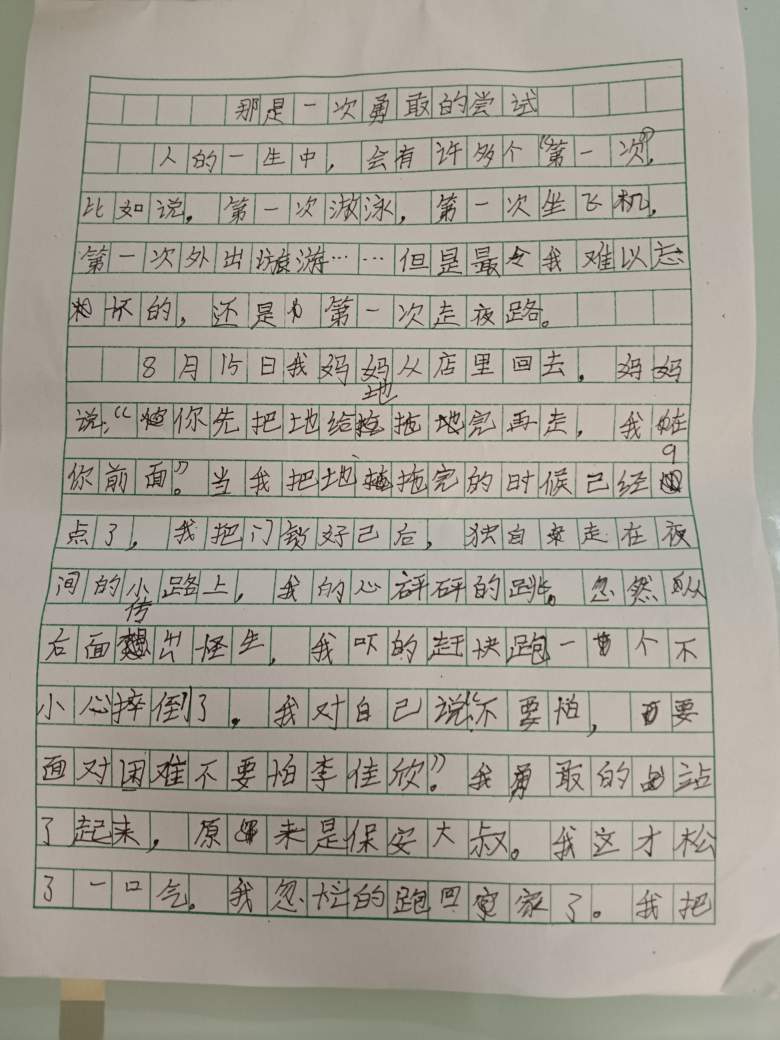 那是一次勇敢的尝试
人的一生中，会有许多个“第一次”，
比如说，第一次游泳，第一次坐飞机，
第一次外出旅游……但是最令我难以忘
怀的，还是第一次走夜路。
8月15日我妈妈从店里回去，妈妈
说：“你先把地给拖地完再走，我在
你前面。”当我把地拖完的时候已经9
点了，我把门锁好己后，独自走在夜
间的小路上，我的心砰砰的跳。忽然从
右面传出怪生，我吓的赶快跑一个不
小心摔倒了，我对自己说“不要怕，要
面对困难不要怕李佳欣”。我勇敢的站
了起来，原来是保安大叔。我这才松
了一口气。我忽忙的跑回家了。我把